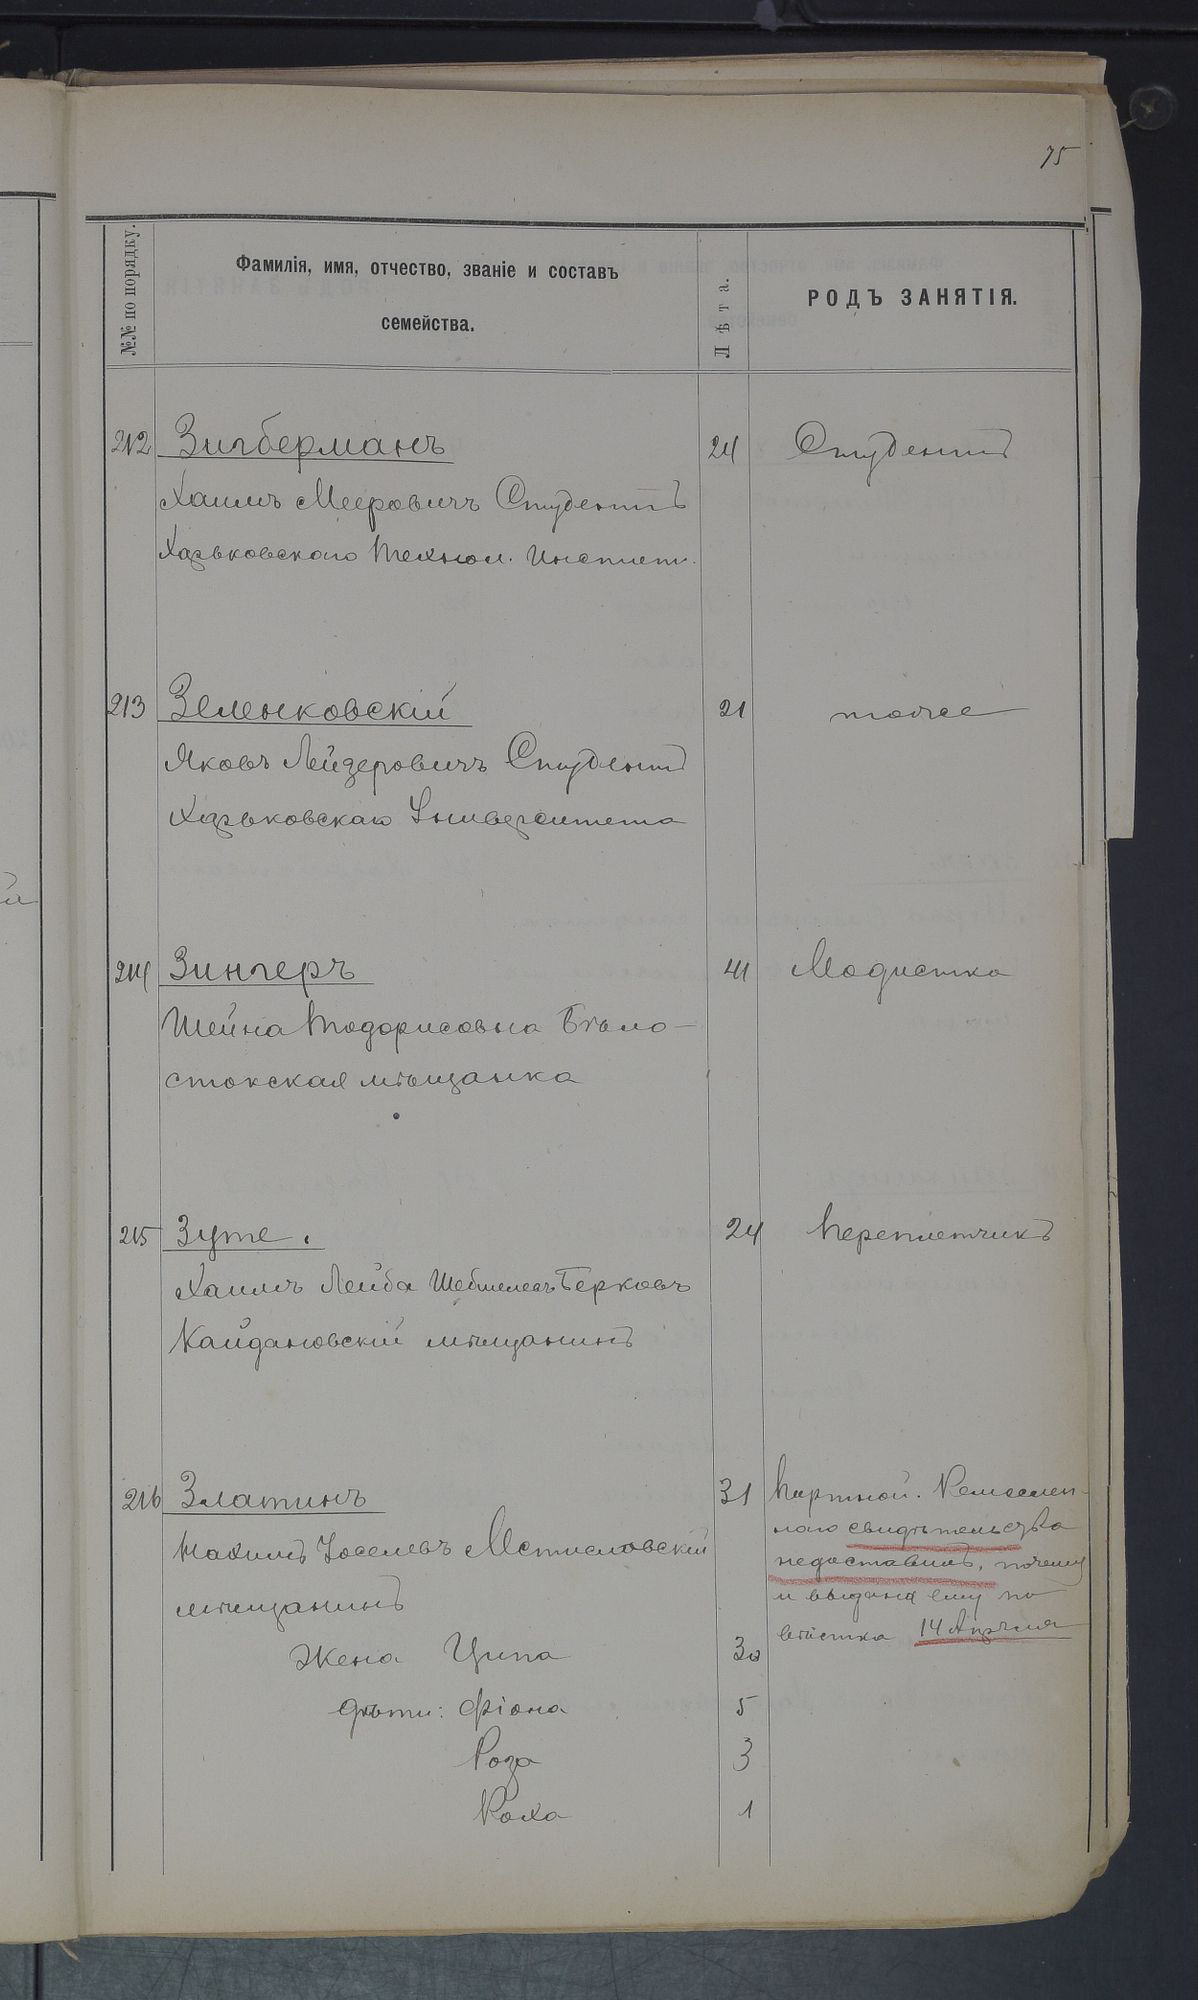 75
№№ по порядку.
Фамилія, имя, отчество, званіе и составъ
семейства.
Лѣта.
РОДЪ ЗАНЯТІЯ.
212 Зигберманъ 24 Студентъ
Хаимъ Мееровичъ Студентъ
Харьковскаго Технол. Институт.
213 Зеленковскій 21 тоже
Яковъ Лейзеровичъ Студентъ
Харьковскаго Университета
214 Зингеръ 41 Модистка
Шейна Тодорисовна Бѣло-
стокская мѣщанка
215 Зуте. 24 Переплетчикъ
Хаимъ Лейба Берковъ
Кайдановскій мѣщанинъ
216 Златинъ 31 Портной. Ремеслен-
наго свидѣтельства
Іоселевъ Мстиславскій
недоставилъ, почему
мѣщанинъ
и выдана ему по
вѣстка 14 Апрѣля
Жена Ципа 30
дѣти: Фіона 5
Роза 3
Роха 1